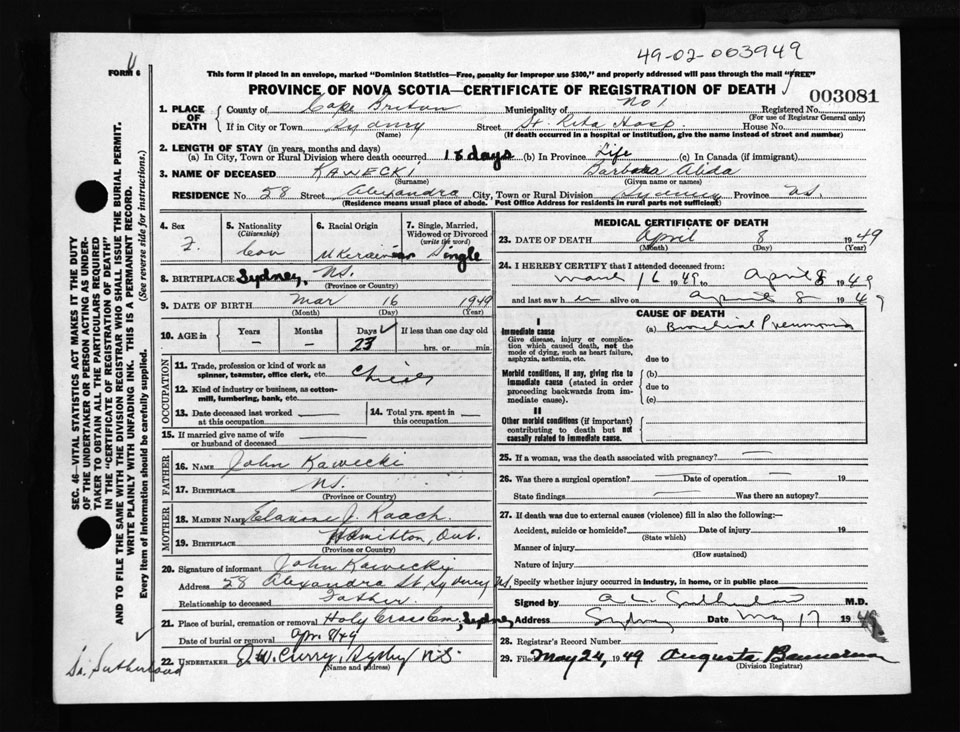 49-02-003949
FORM 6
This form if placed in an envelope, marked "Dominion Statistics—Free, penalty for improper use $300," and properly addressed will pass through the mail "FREE"
PROVINCE OF NOVA SCOTIA—CERTIFICATE OF REGISTRATION OF DEATH
003081
1. PLACE OF DEATH
County of Cape Breton Municipality of No 1 Registered No.
(For use of Registrar General only)
If in City or Town Sydney Street St. Rita Hosp. House No.
(Name) (If death occurred in a hospital or institution, give the name instead of street and number)
2. LENGTH OF STAY (in years, months and days)
(a) In City, Town or Rural Division where death occurred 18 days (b) In Province Life (c) In Canada (if immigrant)
3. NAME OF DECEASED KAWECKI Barbara Alida
(Surname) (Given name or names)
RESIDENCE No. 58 Street Alexandra City, Town or Rural Division Sydney Province NS.
(Residence means usual place of abode. Post Office Address for residents in rural parts not sufficient)
4. Sex
5. Nationality (Citizenship) Can
6. Racial Origin Ukerainian
7. Single, Married, Widowed or Divorced (write the word) Single
8. BIRTHPLACE Sydney, NS.
(Province or Country)
9. DATE OF BIRTH Mar 16 1949
(Month) (Day) (Year)
10. AGE in Years – Months – Days 23 If less than one day old
hrs. or min.
OCCUPATION
11. Trade, profession or kind of work as spinner, teamster, office clerk, etc. Child
12. Kind of industry or business, as cotton-mill, lumbering, bank, etc.
13. Date deceased last worked at this occupation
14. Total yrs. spent in this occupation
15. If married give name of wife or husband of deceased
FATHER
16. NAME John Kawecki
17. BIRTHPLACE NS.
(Province or Country)
MOTHER
18. MAIDEN NAME J. Roach.
19. BIRTHPLACE Hamilton, Ont.
(Province or Country)
20. Signature of informant John Kawecki
Address 58 Alexandra St, Sydney NS,
Relationship to deceased Father.
21. Place of burial, cremation or removal Holy Cross Cem, Sydney
Date of burial or removal Apr 8/49
22. UNDERTAKER J.W. Curry, Sydney NS
(Name and address)
MEDICAL CERTIFICATE OF DEATH
23. DATE OF DEATH April 8 1949
(Month) (Day) (Year)
24. I HEREBY CERTIFY that I attended deceased from:
March 16 1949 to April 8 1949
and last saw her alive on April 8 1949
CAUSE OF DEATH
I
Immediate cause
Give disease, injury or complication which caused death, not the mode of dying, such as heart failure, asphyxia, asthenia, etc.
(a) Bronchial Pneumonia
due to
Morbid conditions, if any, giving rise to immediate cause (stated in order proceeding backwards from immediate cause)
(b)
due to
(c)
II
Other morbid conditions (if important) contributing to death but not causally related to immediate cause.
25. If a woman, was the death associated with pregnancy? —
26. Was there a surgical operation? — Date of operation — 19
State findings — Was there an autopsy?
27. If death was due to external causes (violence) fill in also the following:—
Accident, suicide or homicide? Date of injury 19
(State which)
Manner of injury
(How sustained)
Nature of injury
Specify whether injury occurred in industry, in home, or in public place
Signed by M.D.
Address Sydney Date May 17 1949
28. Registrar's Record Number
29. Filed May 24, 1949 Augusta Bannerman
(Division Registrar)
SEC. 46—VITAL STATISTICS ACT MAKES IT THE DUTY
OF THE UNDERTAKER OR PERSON ACTING AS UNDER-
TAKER TO OBTAIN ALL THE PARTICULARS REQUIRED
IN THE "CERTIFICATE OF REGISTRATION OF DEATH"
AND TO FILE THE SAME WITH THE DIVISION REGISTRAR WHO SHALL ISSUE THE BURIAL PERMIT.
WRITE PLAINLY WITH UNFADING INK. THIS IS A PERMANENT RECORD.
Every item of information should be carefully supplied. (See reverse side for instructions.)
Dr. Sutherland